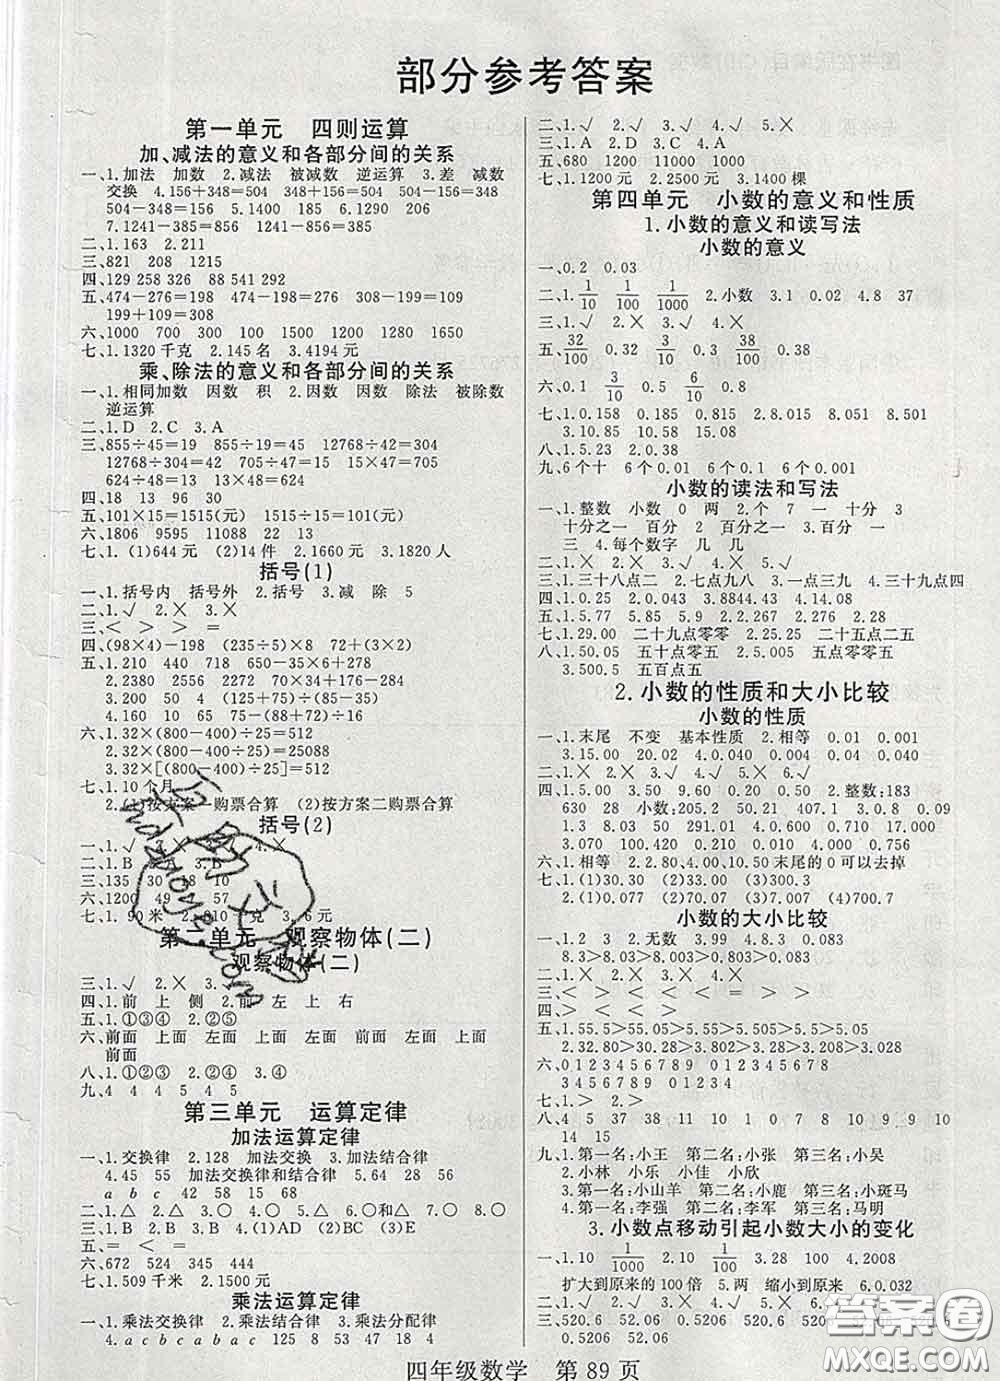 部分参考答案
第一单元　四则运算
加、减法的意义和各部分间的关系
一、1.加法　加数　2.减法　被减数　逆运算　3.差　减数
交换　4.156+348=504　348+156=504　504-156=348
504-348=156　5.600　349　168　6.1290　206
7.1241-385=856　1241-856=385
二、1.163　2.211
三、821　208　1215
四、129 258 326　88 541 292
五、474-276=198　474-198=276　308-199=109
199+109=308
六、1000　700　300　100　1500　1280　1230　1650
七、1.1320千克　2.145名　3.4194元
乘、除法的意义和各部分间的关系
一、1.相同加数　因数　积　2.因数　因数　除法　被除数
逆运算
二、1.D　2.C　3.A
三、855÷45=19　855÷19=45　12768÷42=304
12768÷304=42　19×45=855　42×304=12768
624÷48=13　624÷13=48　13×48=624
四、18　13　96　30
五、101×15=1515(元)　1515÷15=101(元)
六、1806　9595　11088　22　13
七、1.(1)644元　(2)14件　2.1660元　3.1820人
括号(1)
一、1.括号内　括号外　2.括号　3.减　除　5
二、1.√　2.×　3.×
三、<　>　>　=
四、(98×4)-198　(650-235)×8　72+(3×2)
五、1.210　440　718　650-65×6+278
2.2380　2556　(240-20)×15-1420
3.200　50　4　(1250+75)÷(65-40)
4.160　10　25　(728+872)÷16
六、1.32×(800-400)÷25=512
2.32×800-(400÷25)=25088
3.32×[(800-400)÷25]=512
七、1.10个月
2.(1)按方案一购票合算　(2)按方案二购票合算
括号(2)
一、1.√
二、1.B
三、135　30　18　10
六、1200　49　57
七、1.90米
第二单元　观察物体(二)
观察物体(二)
三、1.√　2.×　3.√
四、1.前　上　侧　2.前　左　上　右
五、1.①③④　2.②⑤
六、前面　上面　左面　上面　左面　前面　左面　上面
前面
八、1.①②③　2.②④　3.④
九、4　4　4　5　4　5
第三单元　运算定律
加法运算定律
一、1.交换律　2.128　加法交换　3.加法结合律
4.45　55　加法交换律和结合律　5.64　28　56
a　b　c　42　58　15　68
二、1.△　2.△　3.○　4.○　5.□　6.○和△　7.△　8.○
三、1.B　2.A　3.B　4.(1)AD　(2)BC　(3)E
五、=　<　=
六、672　524　345　444
七、1.509千米　2.1500元
乘法运算定律
一、1.乘法交换律　2.乘法结合律　3.乘法分配律
4.a c b c a b a c　125　8　53　47　18　4
二、1.√　2.√　3.√　4.√　5.×
三、1.A　2.D　3.C　4.A
五、680　1200　11000　1000
七、1.1200元　2.2500元　3.1400棵
第四单元　小数的意义和性质
1.小数的意义和读写法
小数的意义
一、0.2　0.03
二、1.1/10　1/100　1/1000　2.小数　3.1　0.02　4.8　37
三、1.√　2.×　3.√　4.×
五、32/100　0.32　3/10　0.3　38/100　0.38
六、0.1　3/10　0.5　6/10　0.8
七、1.0.158　0.185　0.815　2.8.015　8.051　8.501
3.10.85　10.58　15.08
八、1.5.23　2.0.38
九、6个十　6个0.01　6个0.1　6个0.001
小数的读法和写法
一、1.整数　小数　0　两　2.个　7　一　十分　3
十分之一　百分　2　百分之一　3.百分　八
三　4.每个数字　几　几
二、1.×　2.×　3.√　4.×　5.√
三、1.三十八点二　2.七点九八　3.一点三九　4.三十九点四
四、1.0.25　2.0.043　3.8844.43　4.14.08
五、1.5.77　5.85　5.9　2.2.267　2.276　2.28
七、1.29.00　二十九点零零　2.25.25　二十五点二五
八、1.50.05　五十点零五　2.5.005　五点零零五
3.500.5　五百点五
2.小数的性质和大小比较
小数的性质
一、1.末尾　不变　基本性质　2.相等　0.01　0.001
3.15.00　20.02　4.0.080　0.004　0.040
二、1.×　2.√　3.√　4.×　5.√
四、1.5.00　3.50　9.60　4.50　2.整数:183
630　28　小数:205.2　50.50　407.1　3.0.8　0.09
1.3　8.03　50　291.01　4.0.800　0.710　17.000
3.070　108.420　0.004　0.040　0.400　4.000
六、1.相等　2.2.80、4.00、10.50　末尾的0可以去掉
七、1.(1)30.07　(2)33.00　(3)30.07　(4)300.3
2.(1)0.077　(2)77.00　(3)70.07　(4)700.7
小数的大小比较
一、1.2　3　2.无数　3.99　4.8.3　0.083
8.3>0.83>0.803>0.089>0.083
二、1.×　2.×　3.×　4.×
三、<　>　<　<　<　=　>　>
四、<　>　<　>　<　>
五、1.55.5>55.05>5.55>5.505>5.5>5.05
2.32.80>30.28>3.82>3.208>3.2>3.028
六、0 1 2 3 4 5 6 7 8 9　0 1 2 3 4 5 6 7 8 9
0 1 2 3 4 5 6 7 8 9　0 1 2 3 4
七、1.>　2.>
八、4　5　37　38　11　10　1　0　7　8　9　9　10
14　15
九、1.第一名:小王　第二名:小张　第三名:小吴
2.小林　小乐　小佳　小欣
3.第一名:小山羊　第二名:小鹿　第三名:小斑马
4.第一名:李强　第二名:李军　第三名:马明
3.小数点移动引起小数大小的变化
一、1.10　1/1000　2.10　1/100　3.28　100　4.2008
扩大到原来的100倍　5.两　缩小到原来　6.0.032
二、1.√　2.√　3.√　4.×
0.5206　52.06
四年级数学　第89页
答案圈
MXQE.COM